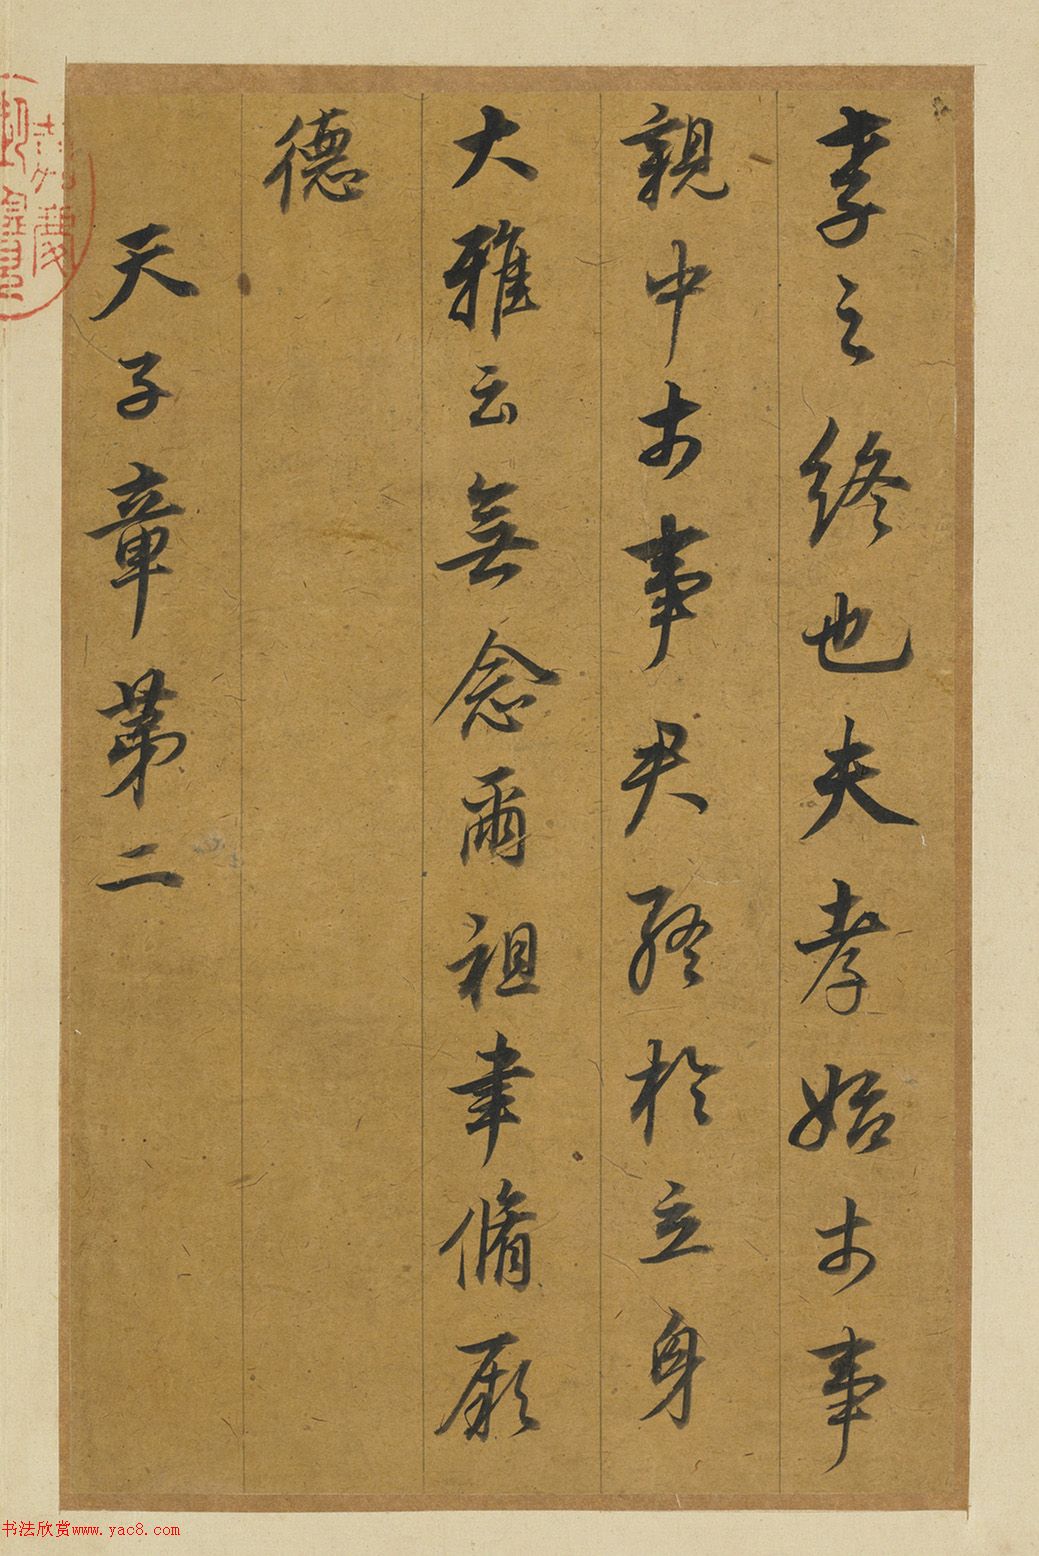 孝之終也夫孝始于事
親中于事君終於立身
大雅云無念爾祖聿脩厥
德
天子章第二
书法欣赏www.yac8.com